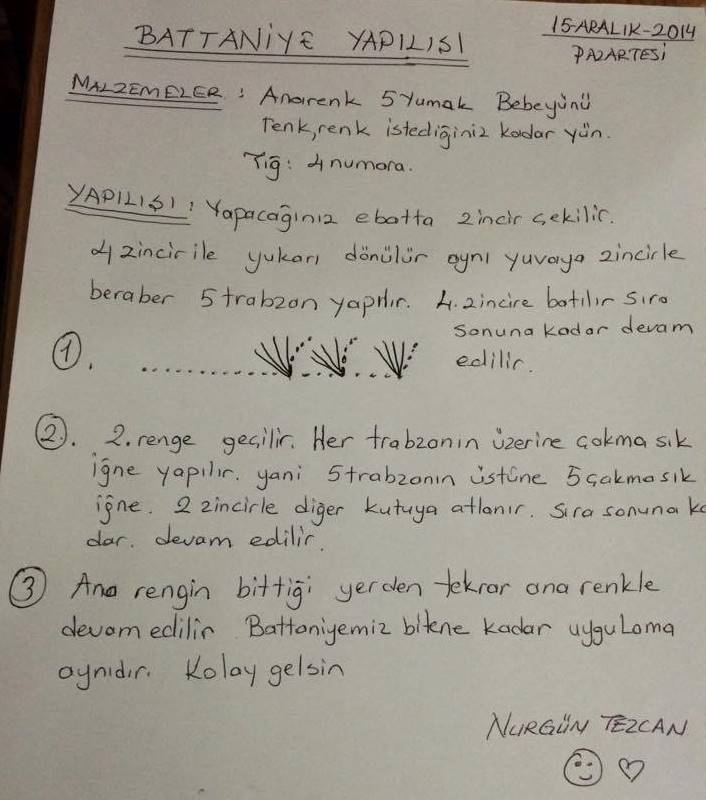 BATTANİYE YAPILIŞI
15-ARALIK-2014
PAZARTESİ
MALZEMELER : Anarenk 5 Yumak Bebeyünü
renk,renk istediğiniz kadar yün.
Tığ: 4 numara.
YAPILIŞI : Yapacağınız ebatta zincir çekilir.
4 zincir ile yukarı dönülür aynı yuvaya zincirle
beraber 5 trabzan yapılır. 4. zincire batılır sıra
sonuna kadar devam
edilir.
1.
2. 2. renge geçilir. Her trabzanın üzerine çakma sık
iğne yapılır. yani 5 trabzanın üstüne 5 çakma sık
iğne. 2 zincirle diğer kutuya atlanır. Sıra sonuna ka
dar. devam edilir.
3 Ana rengin bittiği yerden tekrar ana renkle
devam edilir Battaniyemiz bitene kadar uygulama
aynıdır. Kolay gelsin
NURGÜN TEZCAN